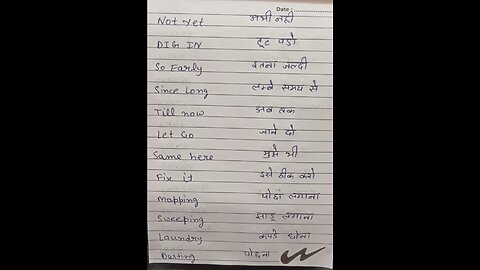 Date :
Not yet अभी नहीं
DIG IN टूट पड़ो
So Early इतना जल्दी
Since Long लम्बे समय से
Till now अब तक
Let Go जाने दो
Same here मुझे भी
Fix it इसे ठीक करो
mopping पोछां लगाना
Sweeping झाड़ू लगाना
Laundry कपडे धोना
Dusting पोछना